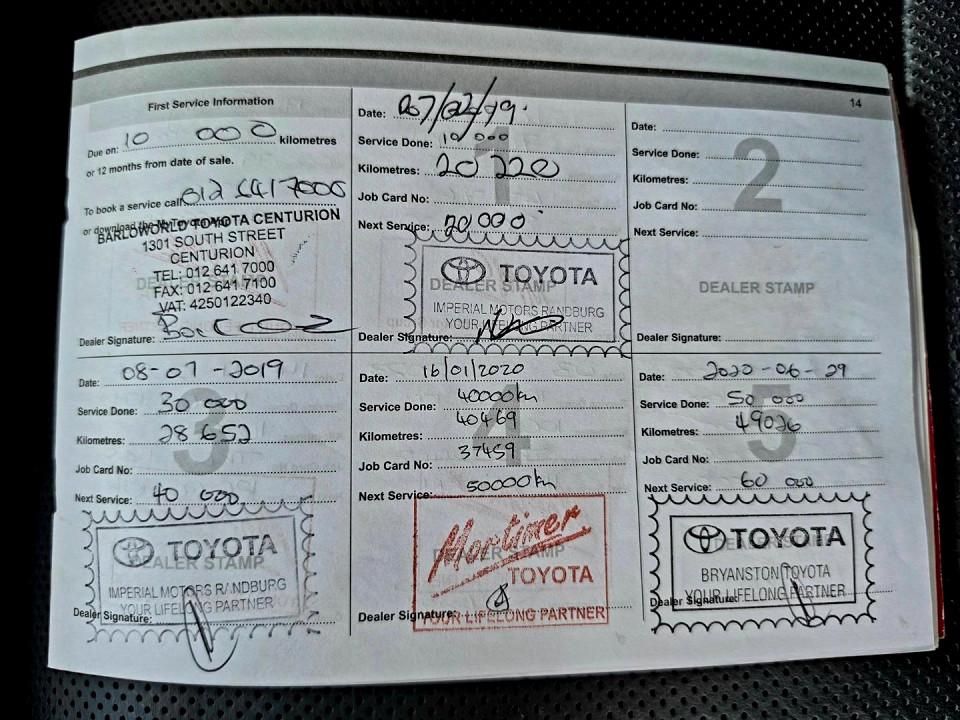 14
First Service Information
Due on: 10 000 kilometres
or 12 months from date of sale.
To book a service call 012 6417000
or download the MyToyota
BARLOWORLD TOYOTA CENTURION
1301 SOUTH STREET
CENTURION
TEL: 012 641 7000
FAX: 012 641 7100
VAT: 4250122340
Dealer Signature:
1
Date: 07/02/19
Service Done: 10 000
Kilometres: 20 220
Job Card No:
Next Service: 20 000
DEALER STAMP
TOYOTA
IMPERIAL MOTORS RANDBURG
YOUR LIFELONG PARTNER
Dealer Signature:
2
Date:
Service Done:
Kilometres:
Job Card No:
Next Service:
DEALER STAMP
Dealer Signature:
3
Date: 08-07-2019
Service Done: 30 000
Kilometres: 28 652
Job Card No:
Next Service: 40 000
DEALER STAMP
TOYOTA
IMPERIAL MOTORS RANDBURG
YOUR LIFELONG PARTNER
Dealer Signature:
4
Date: 16/01/2020
Service Done: 40000km
Kilometres: 40469
Job Card No: 37459
Next Service: 50000km
DEALER STAMP
Mortimer
TOYOTA
YOUR LIFELONG PARTNER
Dealer Signature:
5
Date: 2020-06-29
Service Done: 50 000
Kilometres: 49026
Job Card No:
Next Service: 60 000
TOYOTA
BRYANSTON TOYOTA
YOUR LIFELONG PARTNER
Dealer Signature: